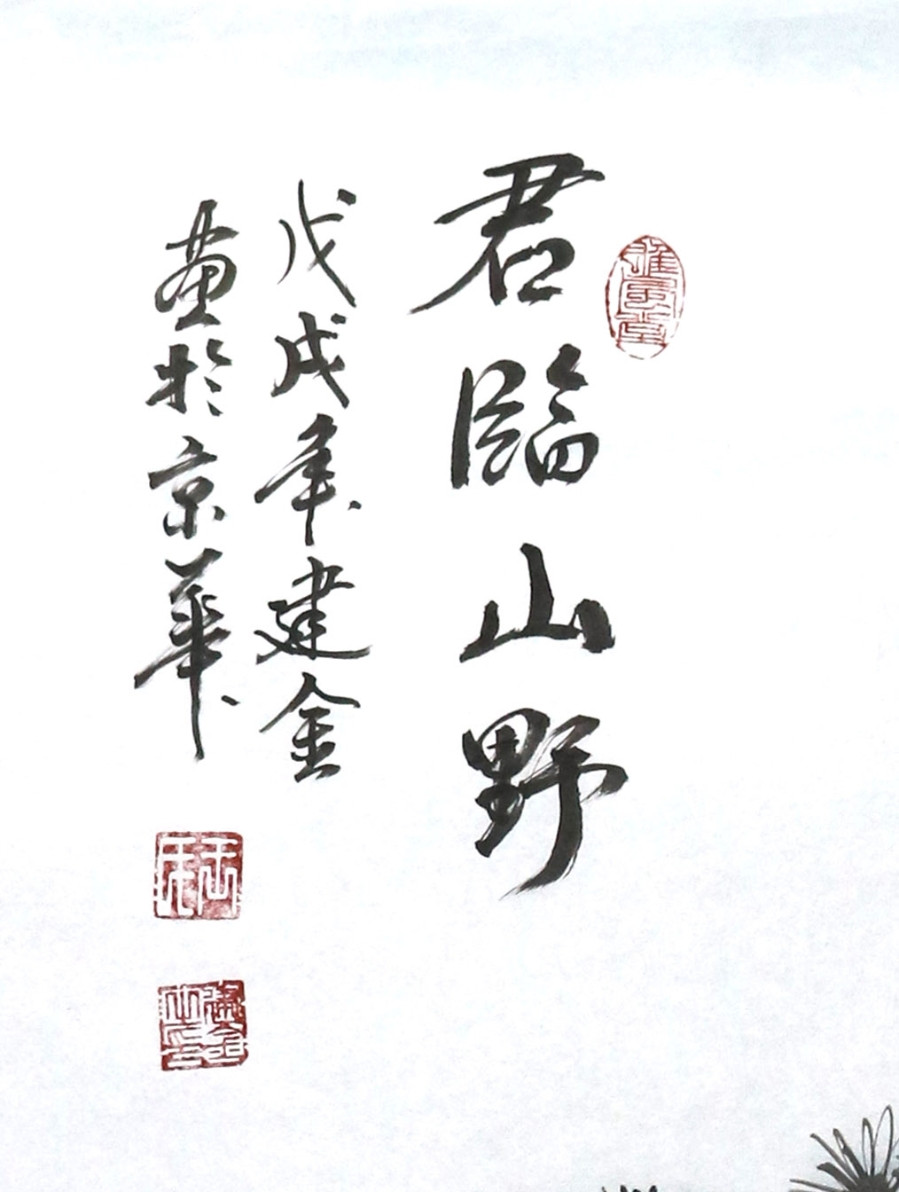 君臨山野
戊戌年建金
畫於京華